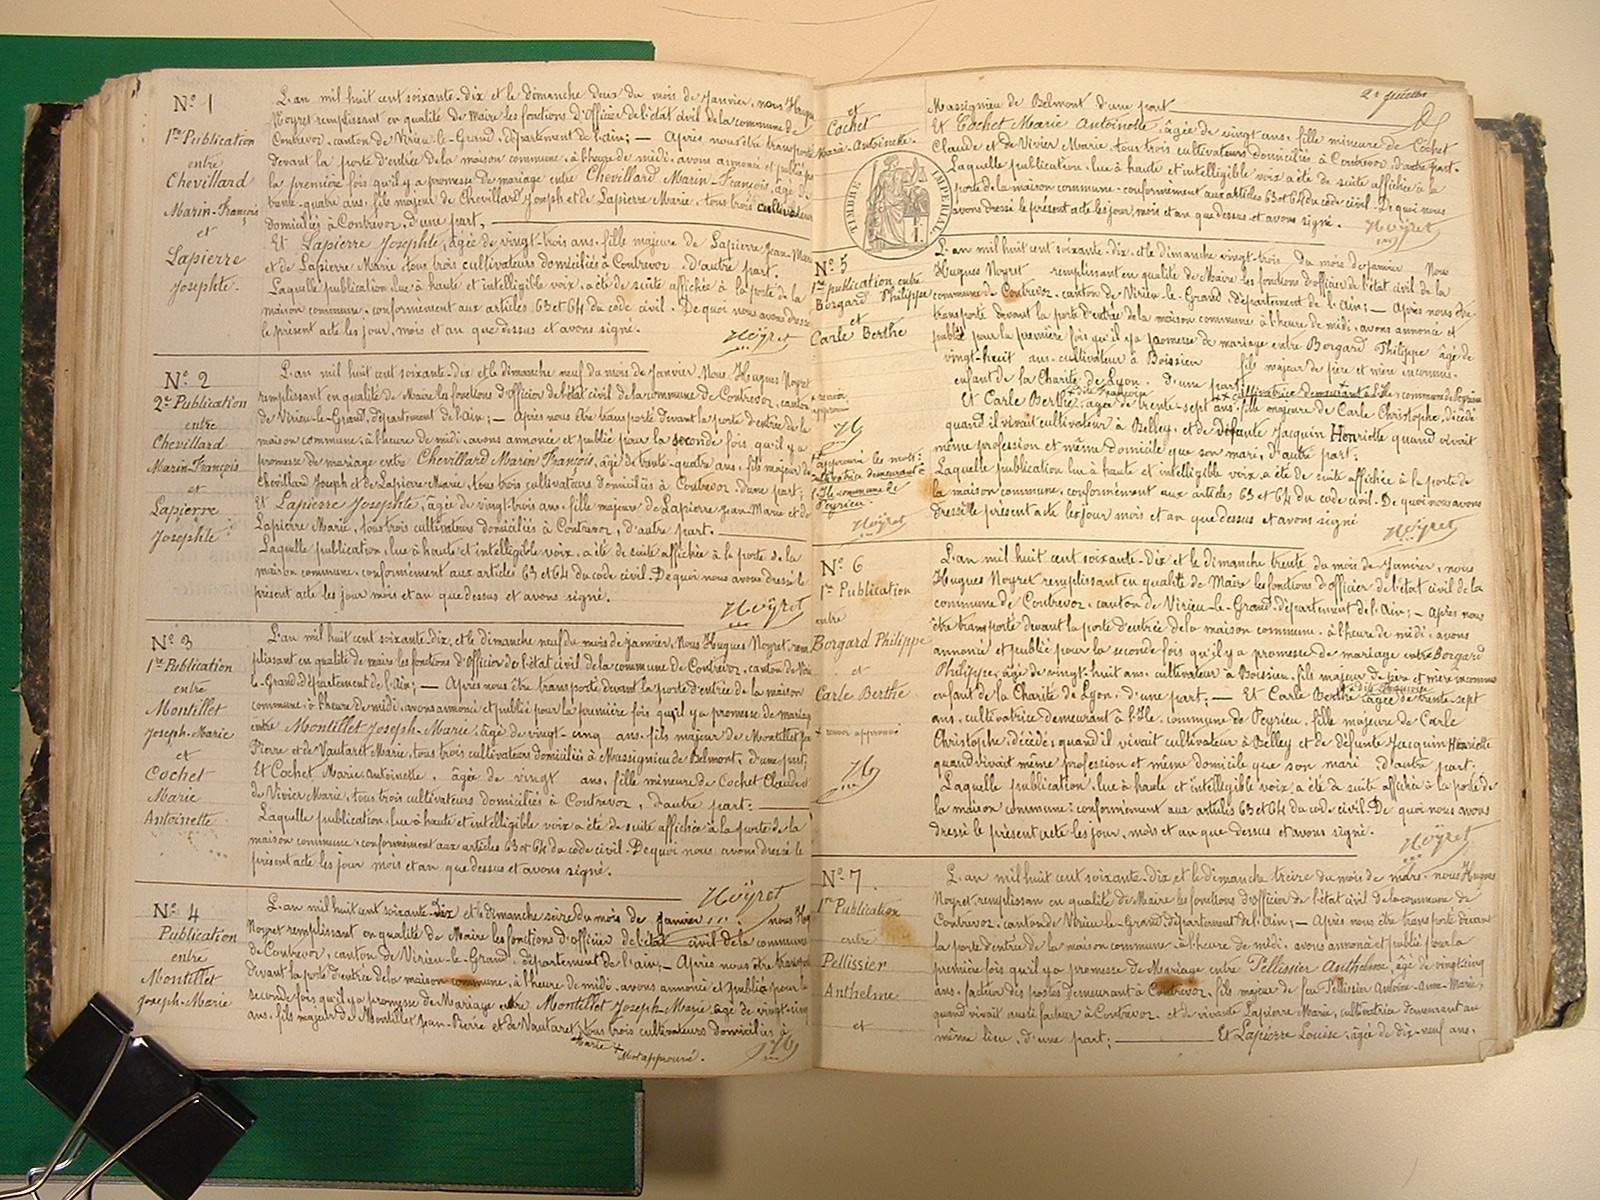 Nº 1
1re Publication
entre
Chevillard
Marin-François
et
Lapierre
Josephte.
L'an mil huit cent soixante-dix et le dimanche deux du mois de Janvier, nous Hugues
Noyret remplissant en qualité de Maire les fonctions d'Officier de l'état civil de la commune de
Contrevoz, canton de Virieu-le-Grand, département de l'ain; — Après nous être transporté
devant la porte d'entrée de la maison commune, à l'heure de midi, avons annoncé et publié pr
la première fois qu'il y a promesse de mariage entre Chevillard Marin-François, âgé de
trente-quatre ans, fils majeur de Chevillard Joseph et de Lapierre Marie, tous trois cultivateurs
domiciliés à Contrevoz, d'une part,
Et Lapierre Josephte, âgée de vingt-trois ans, fille majeure de Lapierre Jean-Marie
et de Lapierre Marie tous trois cultivateurs domiciliés à Contrevoz, d'autre part.
Laquelle publication, lue à haute et intelligible voix, a été de suite affichée à la porte de la
maison commune, conformément aux articles 63 et 64 du code civil. De quoi nous avons dressé
le présent acte les jour, mois et an que dessus et avons signé.
Noÿret
Nº 2
2e Publication
entre
Chevillard
Marin-François
et
Lapierre
Josephte
L'an mil huit cent soixante-dix et le dimanche neuf du mois de Janvier, Nous Hugues Noyret
remplissant en qualité de Maire les fonctions d'Officier de l'état civil de la commune de Contrevoz, canton
de Virieu-le-Grand, département de l'ain; — Après nous être transporté devant la porte d'entrée de la
maison commune, à l'heure de midi, avons annoncé et publié pour la seconde fois qu'il y a
promesse de mariage entre Chevillard Marin François, âgé de trente-quatre ans, fils majeur de
Chevillard Joseph et de Lapierre Marie, tous trois cultivateurs domiciliés à Contrevoz, d'une part;
Et Lapierre Josephte, âgée de vingt-trois ans, fille majeure de Lapierre Jean-Marie et de
Lapierre Marie, tous trois cultivateurs domiciliés à Contrevoz, d'autre part.
Laquelle publication, lue à haute et intelligible voix, a été de suite affichée à la porte de la
maison commune, conformément aux articles 63 et 64 du code civil. De quoi nous avons dressé le
présent acte les jour mois et an que dessus et avons signé.
Noÿret
Nº 3
1re Publication
entre
Montillet
Joseph-Marie
et
Cochet
Marie
Antoinette
L'an mil huit cent soixante-dix, et le dimanche neuf du mois de janvier, Nous Hugues Noyret, rem
plissant en qualité de maire les fonctions d'Officier de l'état civil de la commune de Contrevoz, canton de Virieu
le-Grand, département de l'Ain; — Après nous être transporté, devant la porte d'entrée de la maison
commune, à l'heure de midi, avons annoncé et publié pour la première fois qu'il y a promesse de mariage
entre Montillet Joseph-Marie, âgé de vingt-cinq ans, fils majeur de Montillet Jn
Pierre et de Vautaret Marie, tous trois cultivateurs domiciliés à Massignieu de Belmont, d'une part,
Et Cochet Marie Antoinette, âgée de vingt ans, fille mineure de Cochet Claude et
de Vivier Marie, tous trois cultivateurs domiciliés à Contrevoz, d'autre part:
Laquelle publication, lue à haute et intelligible voix a été de suite affichée à la porte de la
maison commune, conformément aux articles 63 et 64 du code civil. De quoi nous avons dressé le
présent acte les jour mois et an que dessus et avons signé.
Noÿret
Nº 4
Publication
entre
Montillet
Joseph-Marie
L'an mil huit cent soixante-dix et le dimanche seize du mois de janvier nous Hug
Noyret remplissant en qualité de Maire les fonctions d'officier de l'état civil de la commune
de Contrevoz, canton de Virieu-le-Grand, département de l'ain, — Après nous être transporté
devant la porte d'entrée de la maison commune, à l'heure de midi, avons annoncé et publié pour la
seconde fois qu'il y a promesse de Mariage entre Montillet Joseph-Marie, âgé de vingt-cinq
ans, fils majeur de Montillet Jean-Pierre et de Vautaret, tous trois cultivateurs domiciliés à
Marie + Mot approuvé.
et
Cochet
Marie-Antoinette.
TIMBRE IMPERIAL
Massignieu de Belmont d'une part
Et Cochet Marie Antoinette, âgée de vingt ans, fille mineure de Cochet
Claude et de Vivier Marie, tous trois cultivateurs domiciliés à Contrevoz, d'autre part.
Laquelle publication, lue à haute et intelligible voix a été de suite affichée à la
porte de la maison commune conformément aux articles 63 et 64 du code civil. De quoi nous
avons dressé le présent acte les jour, mois et an que dessus et avons signé.
Noÿret
Nº 5
1re publication entre
Borgard Philippe
et
Carle Berthe
L'an mil huit cent soixante-dix, et le dimanche vingt-trois du mois de janvier Nous
Hugues Noyret remplissant en qualité de Maire les fonctions d'officier de l'état civil de la
commune de Contrevoz, canton de Virieu-le-Grand, département de l'Ain; — Après nous être
transporté devant la porte d'entrée de la maison commune à l'heure de midi, avons annoncé et
publié pour la première fois qu'il y a promesse de mariage entre Borgard Philippe âgé de
vingt-huit ans, cultivateur à Boissieu fils majeur de père et mère inconnus,
enfant de la Charité de Lyon, d'une part;
cultivatrice demeurant à l'Ile, commune de Peyrieu
Et Carle Berthe, dite Françoise, âgée de trente-sept ans, fille majeure de Carle Christophe, décédé
quand il vivait cultivateur à Belley, et de défunte Jacquin Henriette quand vivait
même profession et même domicile que son mari, d'autre part;
Laquelle publication lue à haute et intelligible voix, a été de suite affichée à la porte de
la maison commune, conformément aux articles 63 et 64 du code civil. De quoi nous avons
dressé le présent acte les jour mois et an que dessus et avons signé
Noÿret
+ renvoi
approuvé
approuvé les mots:
cultivatrice demeurant à
l'Ile commune de
Peyrieu.
Noÿret
Nº 6
1re Publication
entre
Borgard Philippe
et
Carle Berthe
+ renvoi approuvé
L'an mil huit cent soixante-dix et le dimanche trente du mois de Janvier, nous
Hugues Noyret remplissant en qualité de Maire les fonctions d'Officier de l'état civil de la
commune de Contrevoz, canton de Virieu-le-Grand, département de l'Ain; — Après nous
être transporté devant la porte d'entrée de la maison commune, à l'heure de midi, avons
annoncé et publié pour la seconde fois qu'il y a promesse de mariage entre Borgard
Philippe, âgé de vingt-huit ans, cultivateur à Boissieu, fils majeur de père et mère inconnus
enfant de la Charité de Lyon, d'une part; — Et Carle Berthe dite Françoise âgée de trente-sept
ans, cultivatrice demeurant à l'Ile, commune de Peyrieu, fille majeure de Carle
Christophe, décédé, quand il vivait cultivateur à Belley et de défunte Jacquin Henriette
quand vivait même profession et même domicile que son mari d'autre part;
Laquelle publication, lue à haute et intelligible voix a été de suite affichée à la porte de
la maison commune; conformément aux articles 63 et 64 du code civil. De quoi nous avons
dressé le présent acte les jour, mois et an que dessus et avons signé.
Noÿret
Nº 7
1re Publication
entre
Pellissier
Anthelme
et
L'an mil huit cent soixante-dix et le dimanche treize du mois de mars, nous Hugues
Noyret, remplissant en qualité de Maire les fonctions d'Officier de l'état civil de la commune de
Contrevoz, canton de Virieu-le-Grand, département de l'Ain; — Après nous être transporté devant
la porte d'entrée de la maison commune, à l'heure de midi, avons annoncé et publié pour la
première fois qu'il y a promesse de Mariage entre Pellissier Anthelme, âgé de vingt-cinq
ans, facteur des postes demeurant à Contrevoz, fils majeur de feu Pellissier Antoine-Anne-Marie,
quand vivait aussi facteur à Contrevoz, et de vivante Lapierre Marie, cultivatrice demeurant au
même lieu, d'une part; — Et Lapierre Louise, âgée de dix-neuf ans,